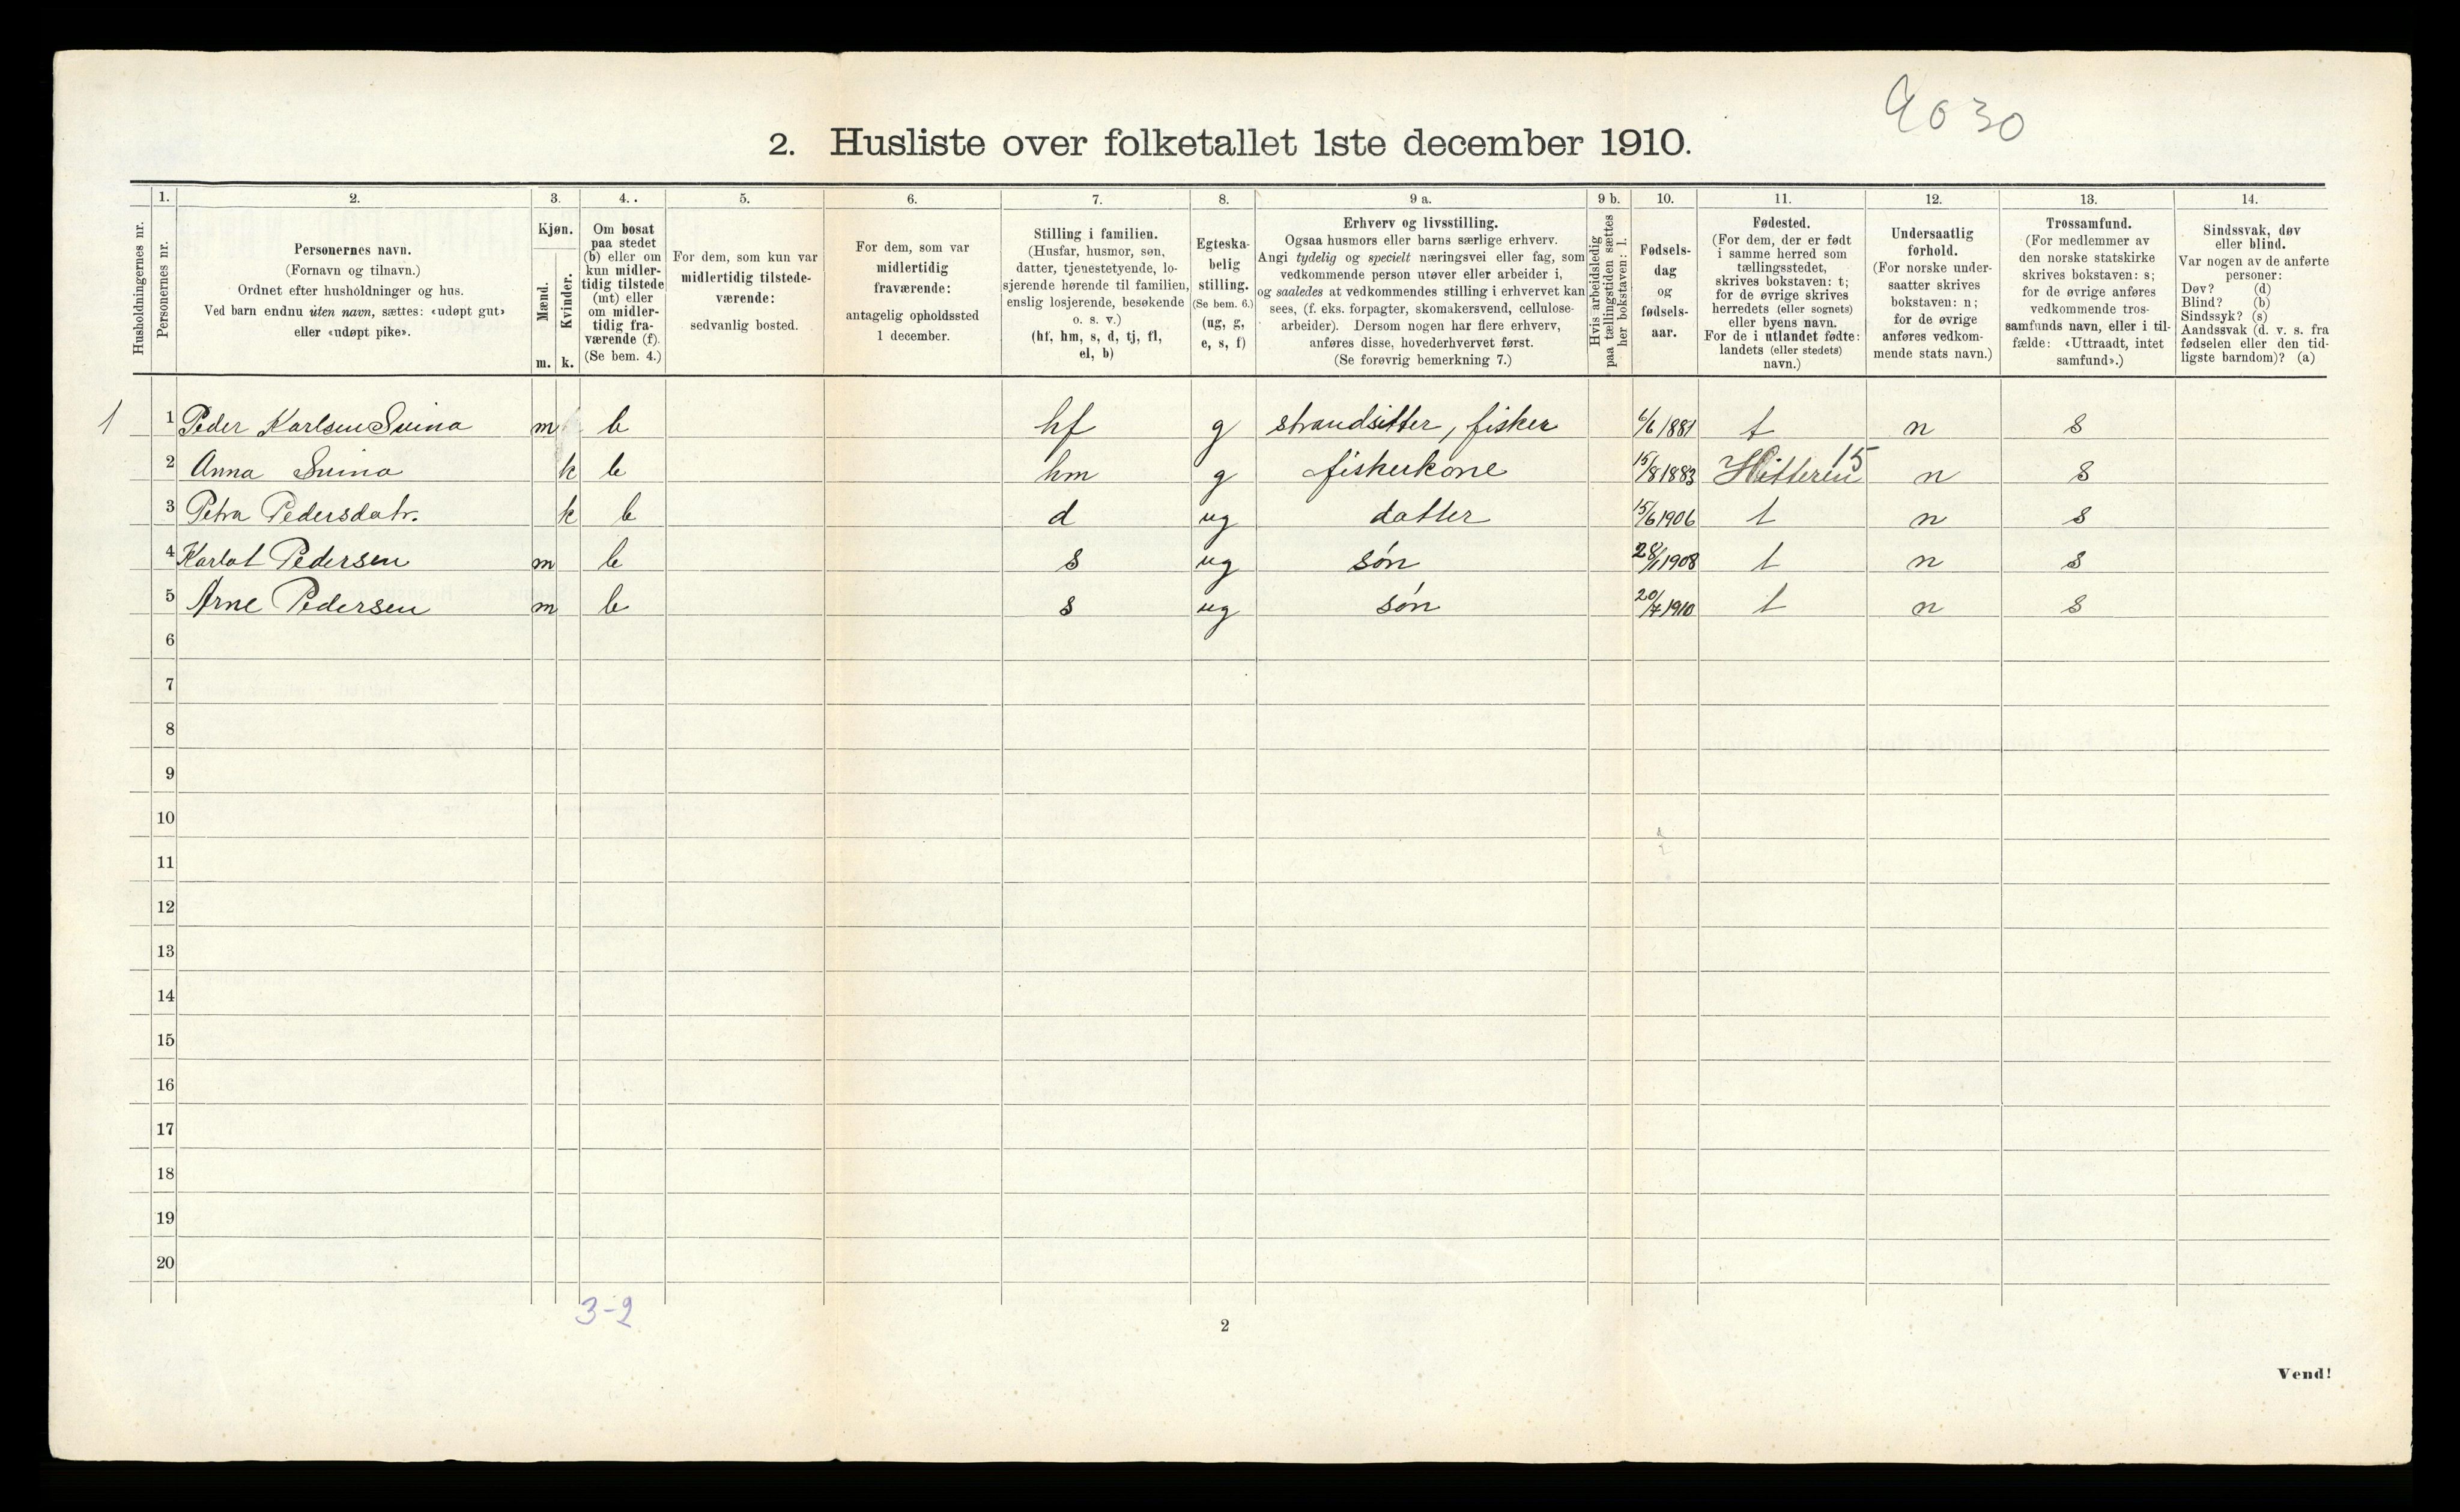 9030
2. Husliste over folketallet 1ste december 1910.
1. 2. 3. 4. 5. 6. 7. 8. 9 a. 9 b. 10. 11. 12. 13. 14.
Husholdningernes nr.
Personernes nr.
Personernes navn.
(Fornavn og tilnavn.)
Ordnet efter husholdninger og hus.
Ved barn endnu uten navn, sættes: «udøpt gut»
eller «udøpt pike».
Kjøn.
Mænd.
Kvinder.
m. k.
Om bosat
paa stedet
(b) eller om
kun midler-
tidig tilstede
(mt) eller
om midler-
tidig fra-
værende (f).
(Se bem. 4.)
For dem, som kun var
midlertidig tilstede-
værende:
sedvanlig bosted.
For dem, som var
midlertidig
fraværende:
antagelig opholdssted
1 december.
Stilling i familien.
(Husfar, husmor, søn,
datter, tjenestetyende, lo-
sjerende hørende til familien,
enslig losjerende, besøkende
o. s. v.)
(hf, hm, s, d, tj, fl,
el, b)
Egteska-
belig
stilling.
(Se bem. 6.)
(ug, g,
e, s, f)
Erhverv og livsstilling.
Ogsaa husmors eller barns særlige erhverv.
Angi tydelig og specielt næringsvei eller fag, som
vedkommende person utøver eller arbeider i,
og saaledes at vedkommendes stilling i erhvervet kan
sees, (f. eks. forpagter, skomakersvend, cellulose-
arbeider). Dersom nogen har flere erhverv,
anføres disse, hovederhvervet først.
(Se forøvrig bemerkning 7.)
Hvis arbeidsledig
paa tællingstiden sættes
her bokstaven: l.
Fødsels-
dag
og
fødsels-
aar.
Fødested.
(For dem, der er født
i samme herred som
tællingsstedet,
skrives bokstaven: t;
for de øvrige skrives
herredets (eller sognets)
eller byens navn.
For de i utlandet fødte:
landets (eller stedets)
navn.)
Undersaatlig
forhold.
(For norske under-
saatter skrives
bokstaven: n;
for de øvrige
anføres vedkom-
mende stats navn.)
Trossamfund.
(For medlemmer av
den norske statskirke
skrives bokstaven: s;
for de øvrige anføres
vedkommende tros-
samfunds navn, eller i til-
fælde: «Uttraadt, intet
samfund».)
Sindssvak, døv
eller blind.
Var nogen av de anførte
personer:
Døv? (d)
Blind? (b)
Sindssyk? (s)
Aandssvak (d. v. s. fra
fødselen eller den tid-
ligste barndom)? (a)
1 1 Peder Karlsen Svina m b hf g strandsitter, fisker 6/6 1881 t n s
2 Anna Svina k b hm g fiskerkone 15/8 1883 Hitteren 15 n s
3 Petra Pedersdatr. k b d ug datter 15/6 1906 t n s
4 Karlot Pedersen m b s ug søn 28/1 1908 t n s
5 Arne Pedersen m b s ug søn 20/7 1910 t n s
6
7
8
9
10
11
12
13
14
15
16
17
18
19
20
3-2
2
Vend!